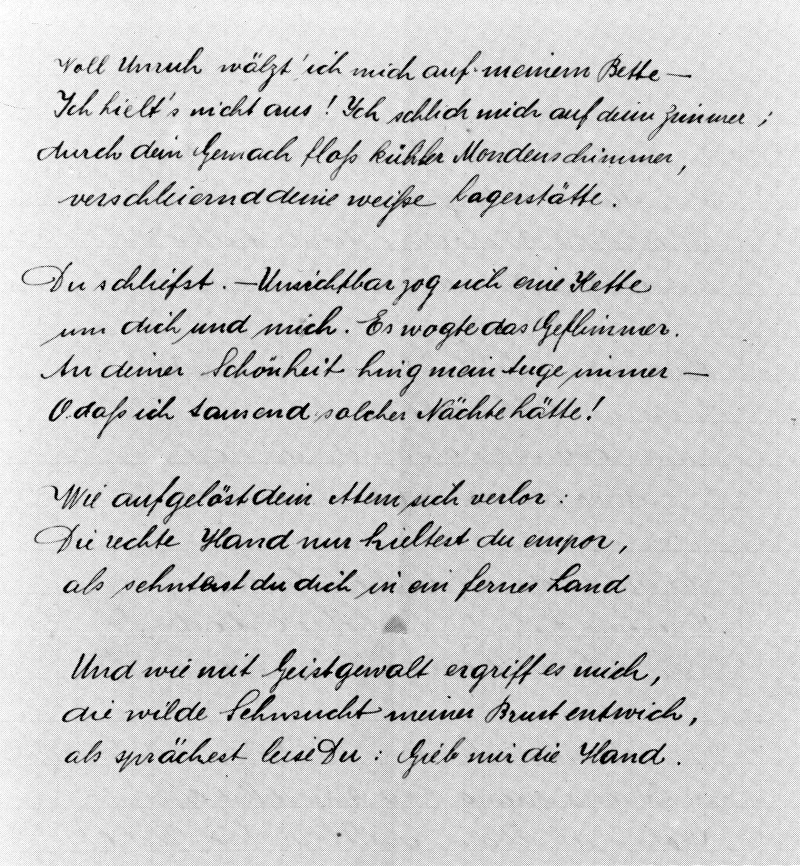 Voll Unruh wälzt' ich mich auf meinem Bette —
Ich hielt's nicht aus! Ich schlich mich auf dein Zimmer;
durch dein Gemach floß kühler Mondenschimmer,
verschleiernd deine weiße Lagerstätte.
Du schliefst. — Unsichtbar zog sich eine Kette
um dich und mich. Es wogte das Geflimmer.
An deiner Schönheit hing mein Auge immer —
O daß ich tausend solcher Nächte hätte!
Wie aufgelöst dein Atem sich verlor:
Die rechte Hand nur hieltest du empor,
als sehntest du dich in ein fernes Land
Und wie mit Geistgewalt ergriff es mich,
die wilde Sehnsucht meiner Brust entwich,
als sprächest leise Du: Gieb mir die Hand.